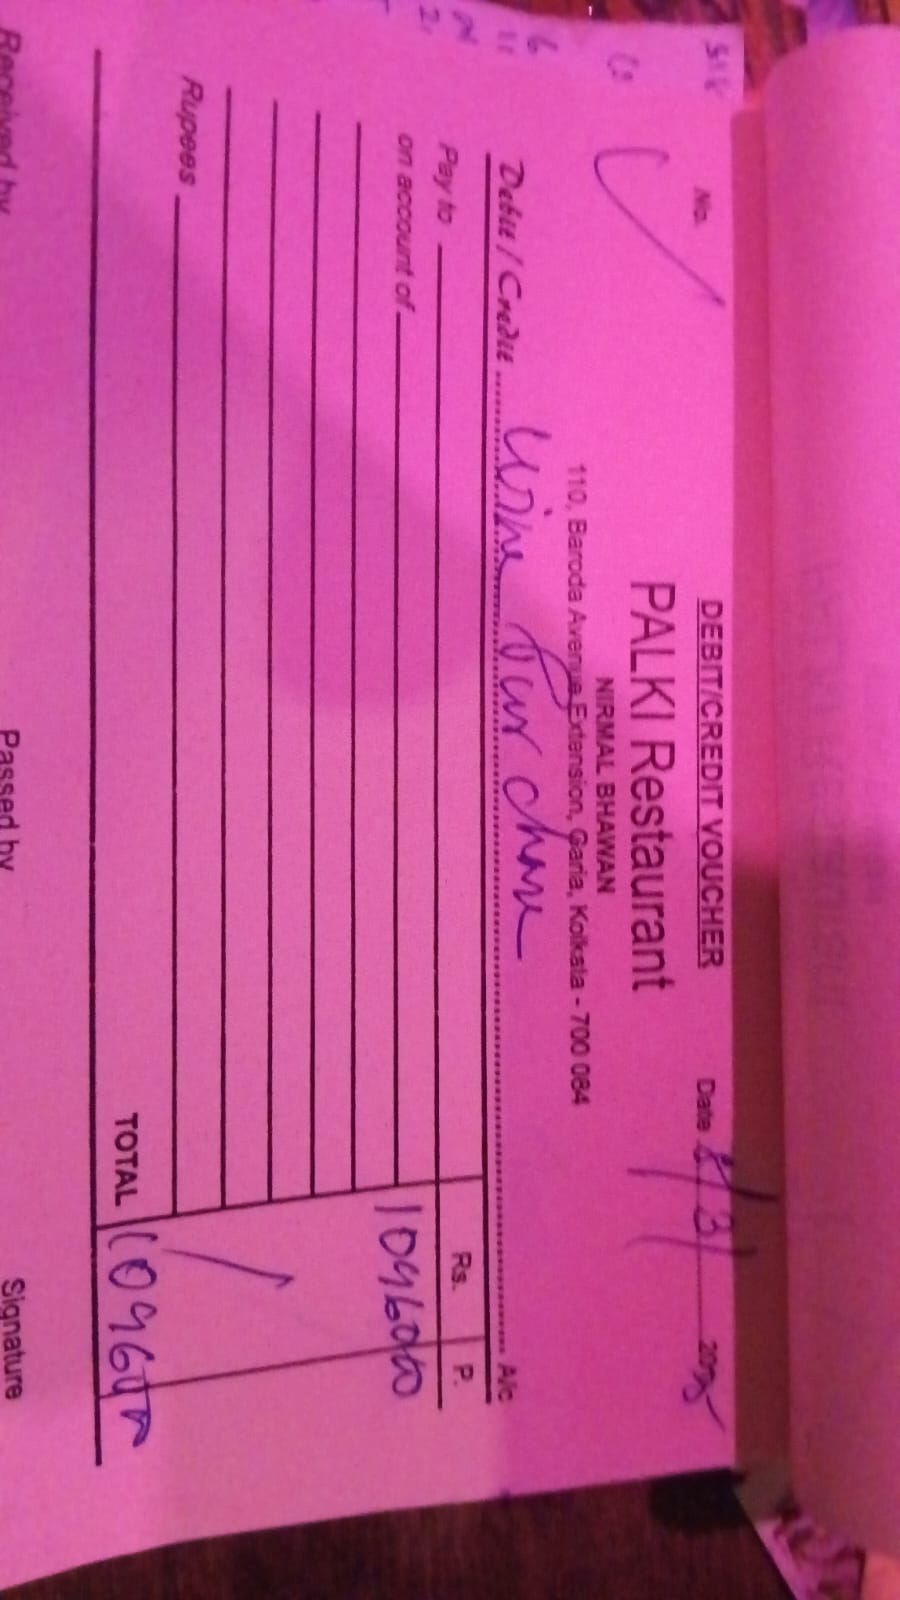 DEBIT/CREDIT VOUCHER
No. Date 8/3/ 2025
PALKI Restaurant
NIRMAL BHAWAN
110, Baroda Avenue Extension, Garia, Kolkata - 700 084
Debit / Credit Wine Purchase A/c
Pay to Rs. P.
on account of 10960 00
Rupees
TOTAL 10960
Received by Passed by Signature